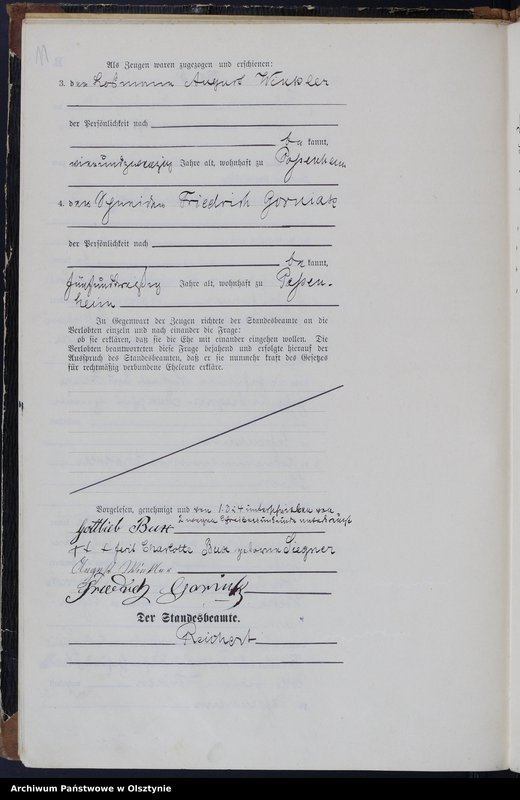 Als Zeugen waren zugezogen und erschienen:
3. der Losmann August Winkler
der Persönlichkeit nach
be kannt,
vierundzwanzig Jahre alt, wohnhaft zu Passenheim
4. der Schneider Friedrich Gorniak
der Persönlichkeit nach
be kannt,
Jahre alt, wohnhaft zu Passen-
heim
In Gegenwart der Zeugen richtete der Standesbeamte an die
Verlobten einzeln und nach einander die Frage:
ob sie erklären, daß sie die Ehe mit einander eingehen wollen. Die
Verlobten beantworteten diese Frage bejahend und erfolgte hierauf der
Ausspruch des Standesbeamten, daß er sie nunmehr kraft des Gesetzes
für rechtmäßig verbundene Eheleute erkläre.
Vorgelesen, genehmigt und von 1. 3 u 4 unterschrieben von
2 wegen Schreibensunkunde unterkreuzt
Gottlieb Bux
+++ Charlotte Bux geborene
August Winkler
Friedrich
Der Standesbeamte.
Reichert
Archiwum Państwowe w Olsztynie